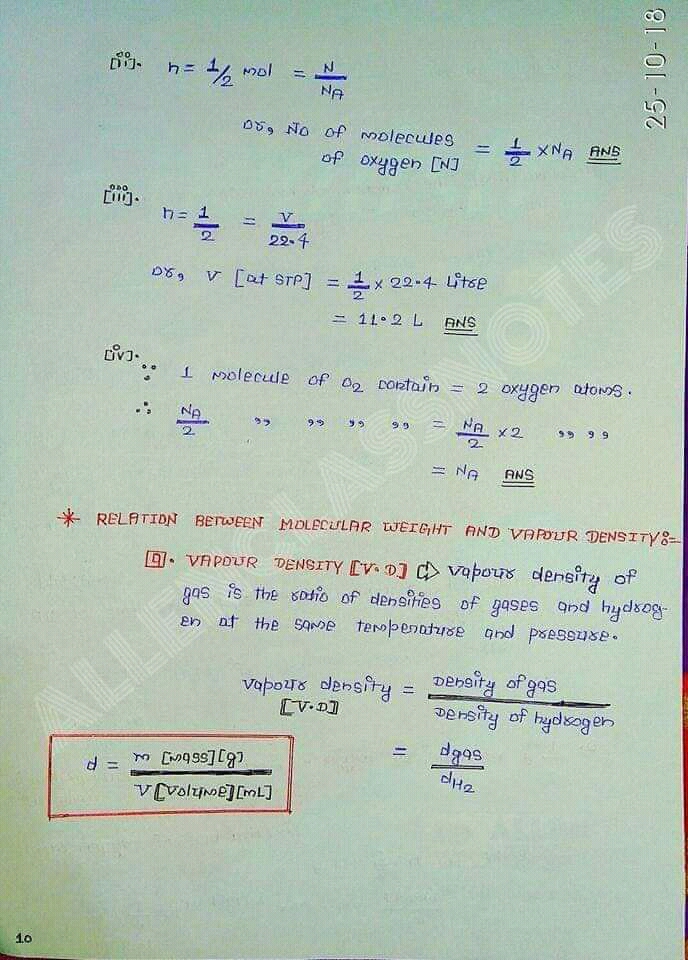 25-10-18
[ii]. n = 1/2 mol = N/NA
or, No of molecules
of oxygen [N] = 1/2 × NA ANS
[iii]. n = 1/2 = V/22.4
or, V [at STP] = 1/2 × 22.4 Litre
= 11.2 L ANS
[iv]. ∵ 1 molecule of O2 contain = 2 oxygen atoms.
∴ NA/2 ,, ,, ,, ,, = NA/2 × 2 ,, ,,
= NA ANS
* RELATION BETWEEN MOLECULAR WEIGHT AND VAPOUR DENSITY:=
a. VAPOUR DENSITY [V.D] ⇨ vapour density of
gas is the ratio of densities of gases and hydrog-
en at the same temperature and pressure.
vapour density [V.D] = Density of gas/Density of hydrogen
= dgas/dH2
d = m [mass][g]/V[volume][mL]
10
ALLENCLASSNOTES